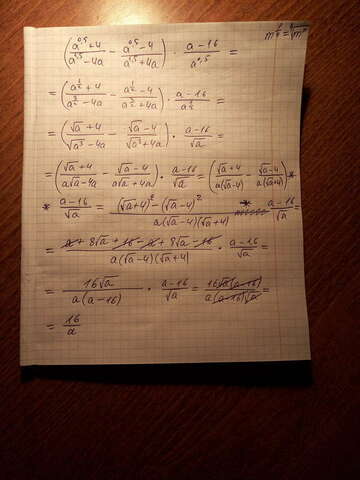 m^(k/n) = ⁿ√m^k
((a^0,5+4)/(a^1,5−4a) − (a^0,5−4)/(a^1,5+4a)) · (a−16)/a^0,5 =
= ((a^(1/2)+4)/(a^(3/2)−4a) − (a^(1/2)−4)/(a^(3/2)+4a)) · (a−16)/a^(1/2) =
= ((√a+4)/(√a³−4a) − (√a−4)/(√a³+4a)) · (a−16)/√a =
= ((√a+4)/(a√a−4a) − (√a−4)/(a√a+4a)) · (a−16)/√a = ((√a+4)/(a(√a−4)) − (√a−4)/(a(√a+4))) *
* (a−16)/√a = ((√a+4)²−(√a−4)²)/(a(√a−4)(√a+4)) * (a−16)/√a =
= (a+8√a+16−a+8√a−16)/(a(√a−4)(√a+4)) · (a−16)/√a =
= 16√a/(a(a−16)) · (a−16)/√a = 16√a(a−16)/(a(a−16)√a) =
= 16/a